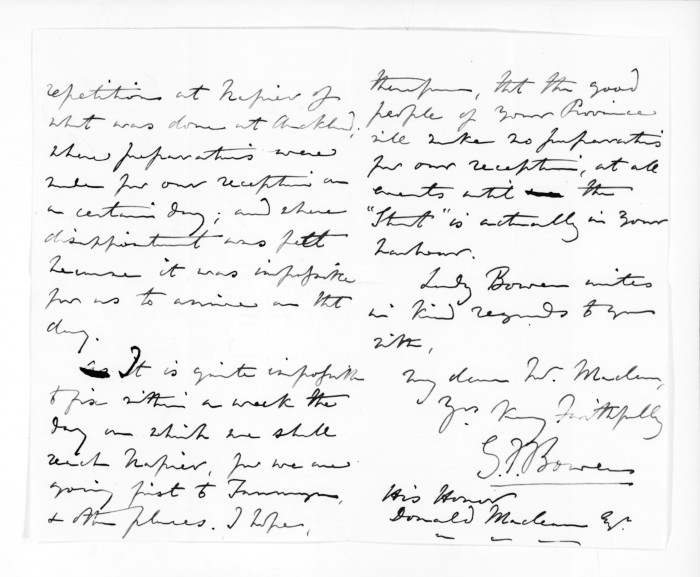 repetition at Napier of
what was done at Auckld,
where preparations were
made for our reception on
a certain day; and where
disappointment was felt
because it was impossible
for us to arrive on the
day.
It is quite impossible
to fix within a week the
day on which we shall
reach Napier, for we are
going first to
& other places. I hope,
therefore, that the good
people of your Province
will make no preparations
for our reception, at all
events until the
"Sturt" is actually in your
harbour.
Lady Bowen unites
in kind regards to you
with,
My dear Mr. Maclean,
Yrs Very Faithfully
G.F. Bowen
His Honor
Donald Maclean Esqr.